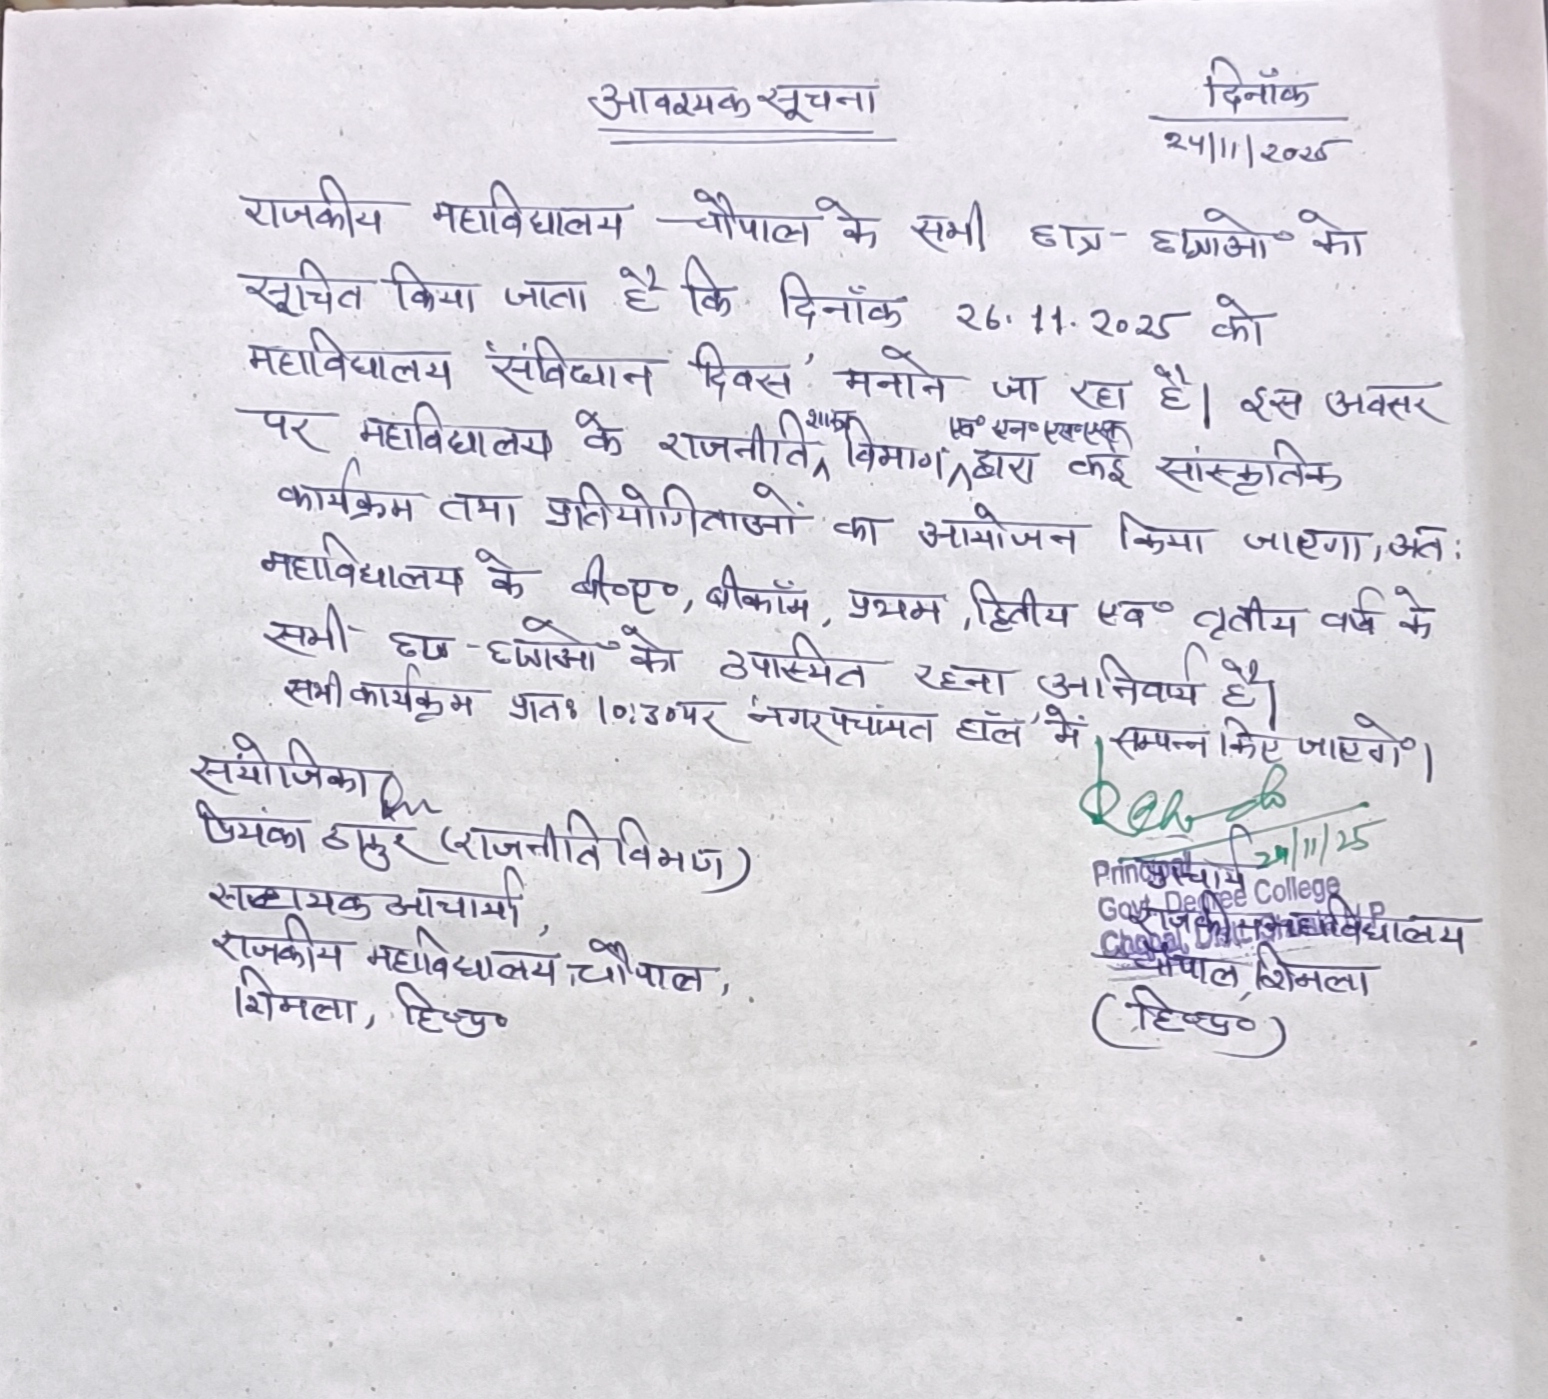 आवश्यक सूचना
दिनाँक
24/11/2025
राजकीय महाविद्यालय चौपाल के सभी छात्र-छात्राओं को
सूचित किया जाता है कि दिनाँक 26.11.2025 को
महाविद्यालय 'संविधान दिवस' मनाने जा रहा है। इस अवसर
पर महाविद्यालय के राजनीति शास्त्र विभाग एवं एन०एस०एस० द्वारा कई सांस्कृतिक
कार्यक्रम तथा प्रतियोगिताओं का आयोजन किया जाएगा, अतः
महाविद्यालय के बी०ए०, बीकॉम, प्रथम, द्वितीय एवं तृतीय वर्ष के
सभी छात्र-छात्राओं को उपस्थित रहना अनिवार्य है।
सभी कार्यक्रम प्रातः 10:30 पर 'नगर पचांयत हॉल' में सम्पन्न किए जाएगें।
संयोजिका
प्रियंका ठाकुर (राजनीति विभाग)
सहायक आचार्या,
राजकीय महाविद्यालय, चौपाल,
शिमला, हि०प्र०
24/11/25
Principal
Govt. Degree College
प्राचार्य
राजकीय महाविद्यालय
चौपाल, शिमला
(हि०प्र०)